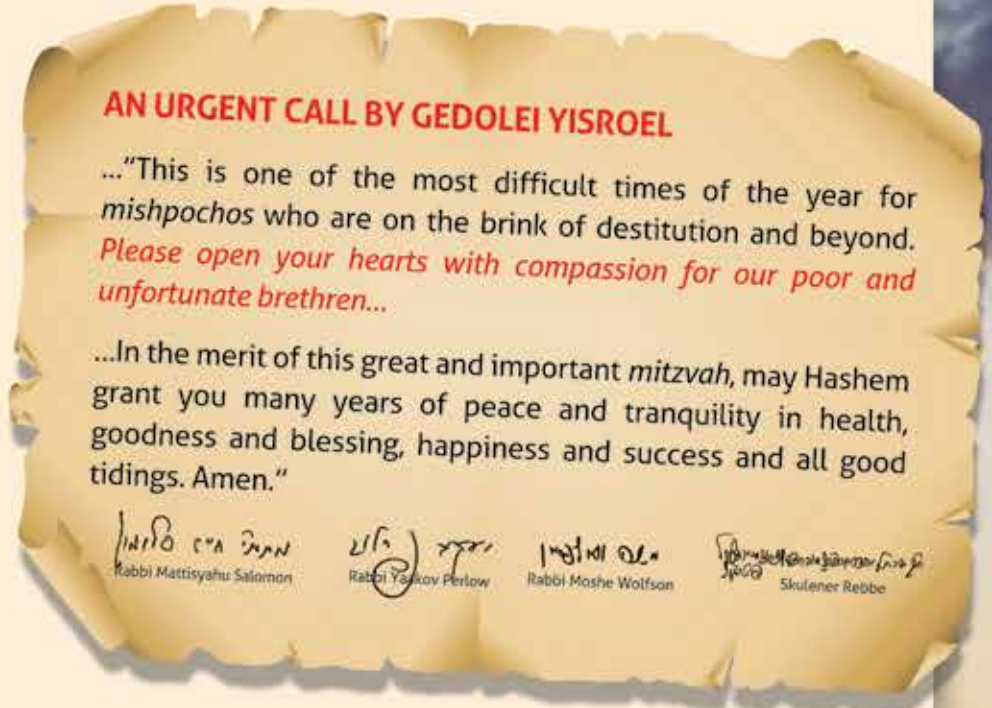 AN URGENT CALL BY GEDOLEI YISROEL
..."This is one of the most difficult times of the year for
mishpochos who are on the brink of destitution and beyond.
Please open your hearts with compassion for our poor and
unfortunate brethren...
...In the merit of this great and important mitzvah, may Hashem
grant you many years of peace and tranquility in health,
goodness and blessing, happiness and success and all good
tidings. Amen."
Rabbi Mattisyahu Salomon
Rabbi Yaakov Perlow
Rabbi Moshe Wolfson
Skulener Rebbe